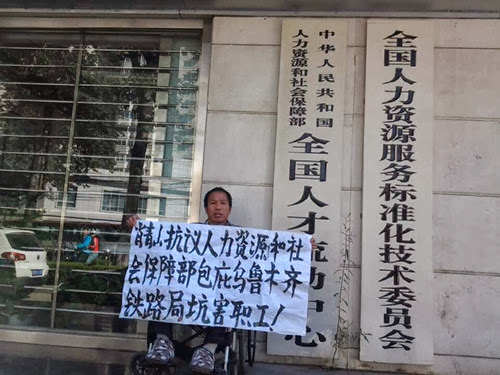 中华人民共和国
人力资源和社会保障部
全国人才流动中心
全国人力资源服务标准化技术委员会
肖青山抗议人力资源和社
会保障部包庇乌鲁木齐
铁路局坑害职工!